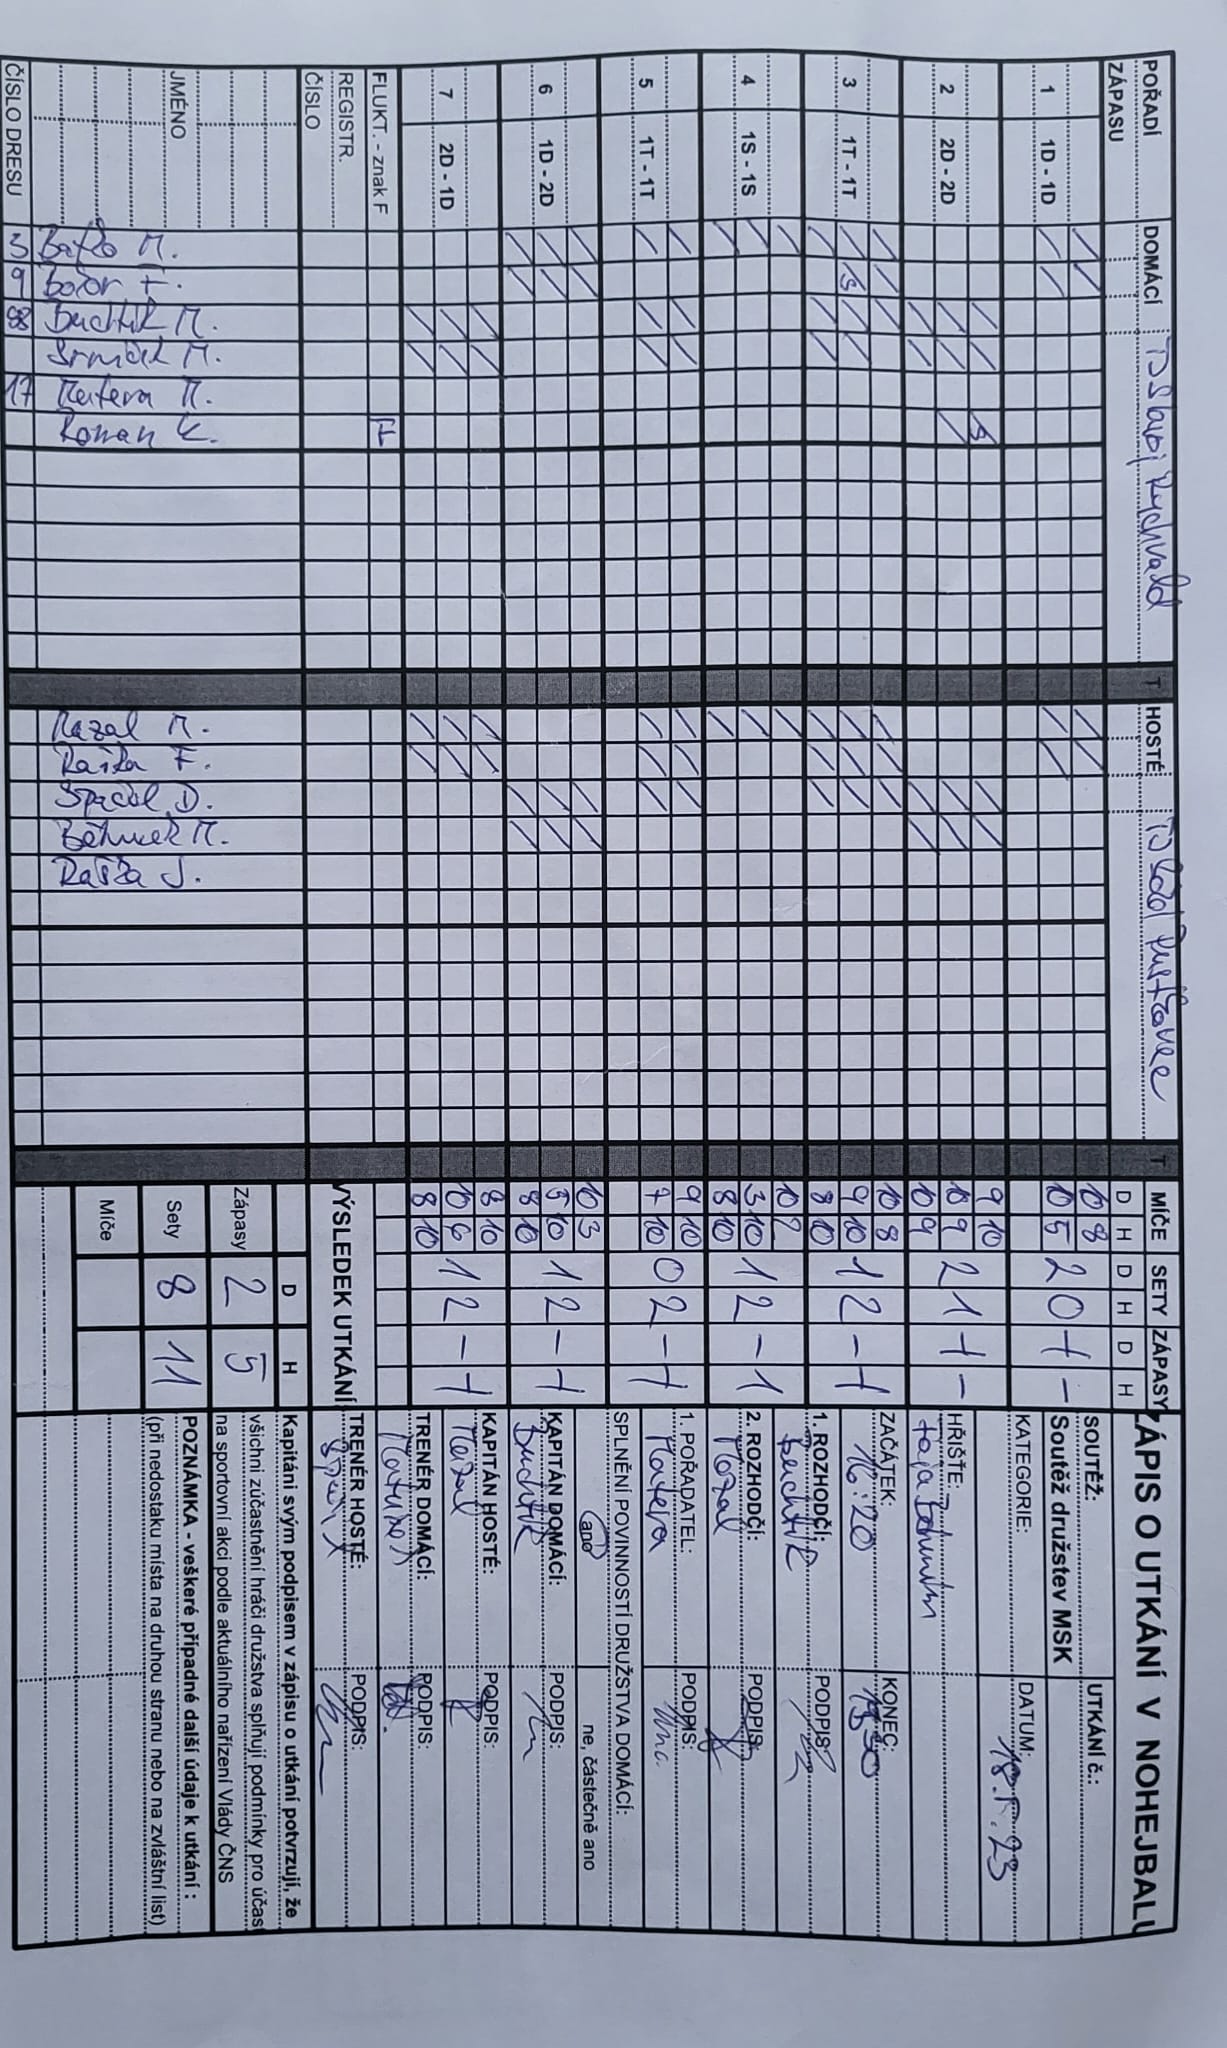 ZÁPIS O UTKÁNÍ V NOHEJBALU
POŘADÍ ZÁPASU
DOMÁCÍ
TJ Slavoj Rychvald
T
HOSTÉ
T
MÍČE SETY ZÁPASY
D H D H D H
1 1D - 1D
10 8
10 5
2 0 + -
2 2D - 2D
9 10
10 9
10 9
2 1 + -
3 1T - 1T
10 8
9 10
8 10
1 2 - +
4 1S - 1S
10 2
3 10
8 10
1 2 - 1
5 1T - 1T
9 10
7 10
0 2 - +
6 1D - 2D
10 3
5 10
8 10
1 2 - +
7 2D - 1D
8 10
10 6
8 10
1 2 - +
FLUKT. - znak F
F
REGISTR. ČÍSLO
JMÉNO
Buchtík M.
Roman K.
Mazal M.
Raška F.
Raška J.
ČÍSLO DRESU
9
17
SOUTĚŽ:
Soutěž družstev MSK
UTKÁNÍ č.:
KATEGORIE:
DATUM:
HŘIŠTĚ:
ZAČÁTEK:
16:20
KONEC:
1. ROZHODČÍ:
Buchtík
PODPIS:
2. ROZHODČÍ:
Mazal
PODPIS:
1. POŘADATEL:
Matera
PODPIS:
SPLNĚNÍ POVINNOSTÍ DRUŽSTVA DOMÁCÍ:
ano
ne, částečně ano
KAPITÁN DOMÁCÍ:
Buchtík
PODPIS:
KAPITÁN HOSTÉ:
Mazal
PODPIS:
TRENÉR DOMÁCÍ:
PODPIS:
TRENÉR HOSTÉ:
PODPIS:
VÝSLEDEK UTKÁNÍ
D H
Zápasy 2 5
Sety 8 11
Míče
Kapitáni svým podpisem v zápisu o utkání potvrzují, že
všichni zúčastnění hráči družstva splňují podmínky pro účast
na sportovní akci podle aktuálního nařízení Vlády ČNS
POZNÁMKA - veškeré případné další údaje k utkání :
(při nedostaku místa na druhou stranu nebo na zvláštní list)